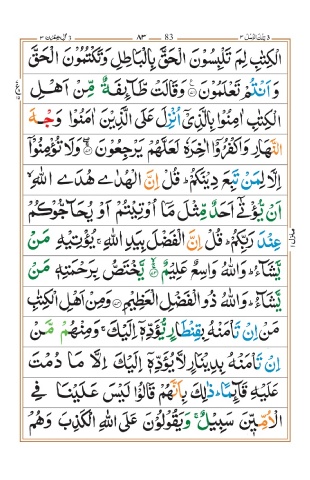 ٨٣ 83
الْكِتٰبِ لِمَ تَلْبِسُوْنَ الْحَقَّ بِالْبَاطِلِ وَتَكْتُمُوْنَ الْحَقَّ
وَاَنْتُمْ تَعْلَمُوْنَ ۞ وَقَالَتْ طَّآئِفَةٌ مِّنْ اَهْلِ
الْكِتٰبِ اٰمِنُوْا بِالَّذِيْۤ اُنْزِلَ عَلَى الَّذِيْنَ اٰمَنُوْا وَجْهَ
النَّهَارِ وَاكْفُرُوْۤا اٰخِرَهٗ لَعَلَّهُمْ يَرْجِعُوْنَ ۞ وَلَا تُؤْمِنُوْۤا
اِلَّا لِمَنْ تَبِعَ دِيْنَكُمْ ؕ قُلْ اِنَّ الْهُدٰى هُدَى اللّٰهِ ۙ
اَنْ يُّؤْتٰۤى اَحَدٌ مِّثْلَ مَاۤ اُوْتِيْتُمْ اَوْ يُحَآجُّوْكُمْ
عِنْدَ رَبِّكُمْ ؕ قُلْ اِنَّ الْفَضْلَ بِيَدِ اللّٰهِ ۚ يُؤْتِيْهِ مَنْ
يَّشَآءُ ؕ وَاللّٰهُ وَاسِعٌ عَلِيْمٌ ۞ يَّخْتَصُّ بِرَحْمَتِهٖ مَنْ
يَّشَآءُ ؕ وَاللّٰهُ ذُو الْفَضْلِ الْعَظِيْمِ ۞ وَمِنْ اَهْلِ الْكِتٰبِ
مَنْ اِنْ تَاْمَنْهُ بِقِنْطَارٍ يُّؤَدِّهٖۤ اِلَيْكَ ۚ وَمِنْهُمْ مَّنْ
اِنْ تَاْمَنْهُ بِدِيْنَارٍ لَّا يُؤَدِّهٖۤ اِلَيْكَ اِلَّا مَا دُمْتَ
عَلَيْهِ قَآئِمًا ؕ ذٰلِكَ بِاَنَّهُمْ قَالُوْا لَيْسَ عَلَيْنَا فِي
الْاُمِّيّٖنَ سَبِيْلٌ ۚ وَيَقُوْلُوْنَ عَلَى اللّٰهِ الْكَذِبَ وَهُمْ